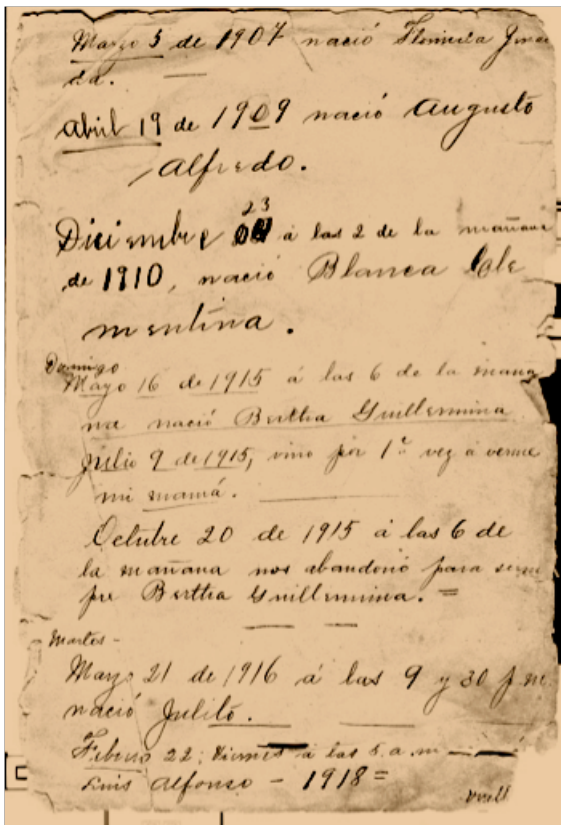 Marzo 5 de 1907 nació
da.
Abril 19 de 1909 nació Augusto
Alfredo.
23
Diciembre á las 2 de la mañana
de 1910, nació Blanca Cle
mentina.
Domingo
Mayo 16 de 1915 á las 6 de la maña
na nació Bertha Guillermina
Julio 9 de 1915, vino por 1ª vez á verme
mi mamá.
Octubre 20 de 1915 á las 6 de
la mañana nos abandonó para siem
pre Bertha Guillermina. =
Martes -
Marzo 21 de 1916 á las 9 y 30 p.m.
nació Julito.
Febrero 22; Viernes á las 5. a.m
Luis Alfonso - 1918 =